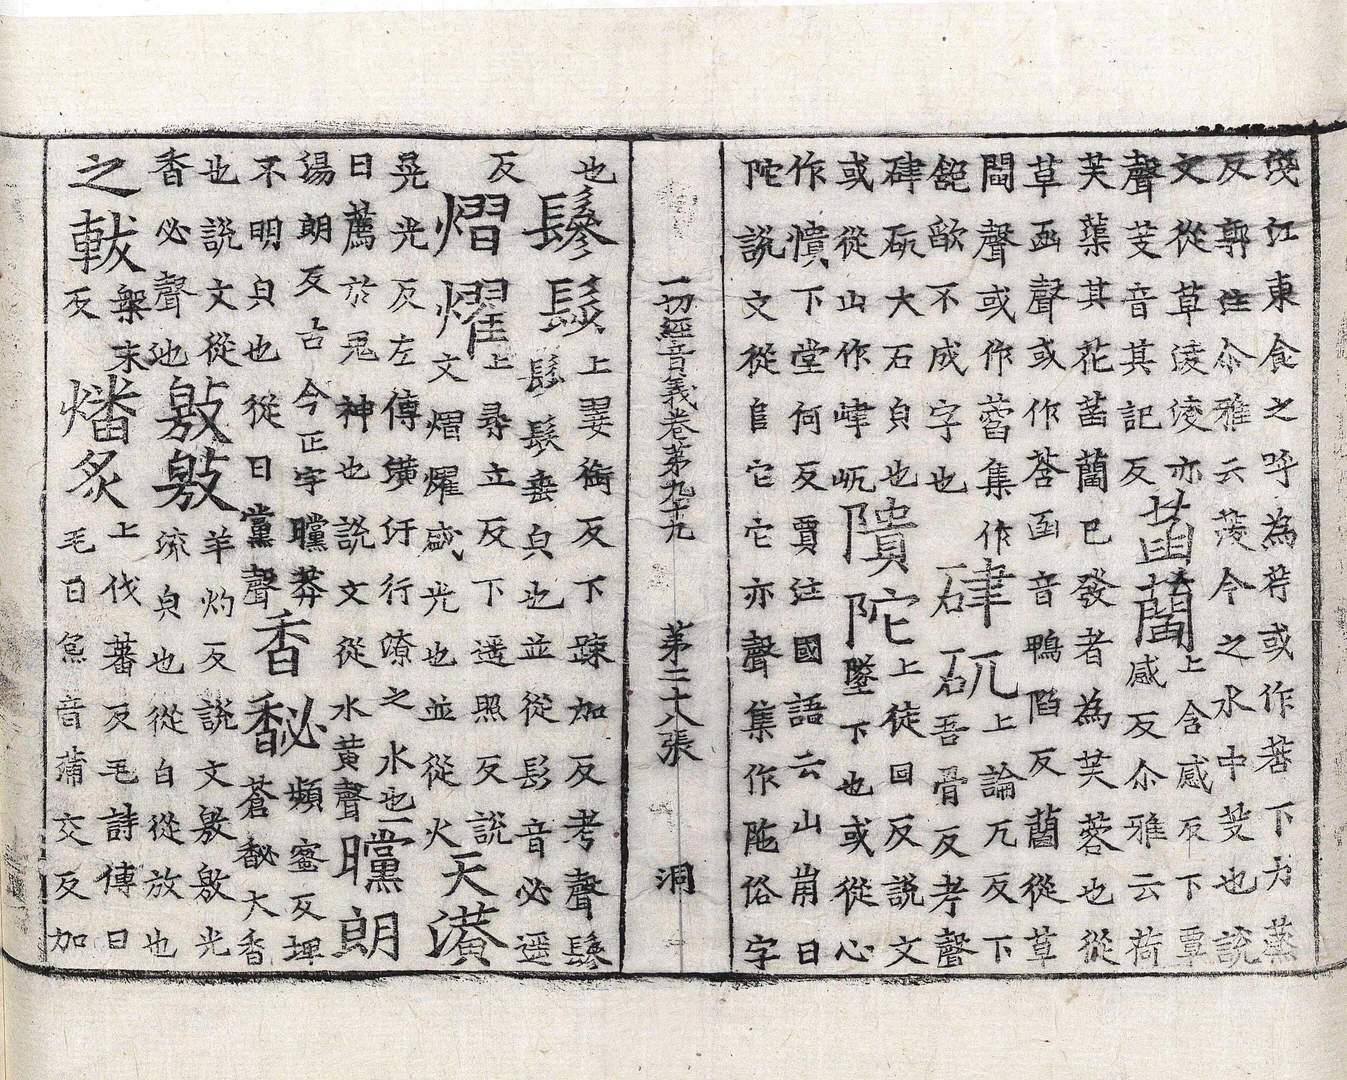 淩江東食之呼為芰或作菩下力蒸
反郭注尒雅云菱今之水中芰也說
文從草淩淩亦
聲芰音其記反
菡藺
上含感反下覃
感反尒雅云荷
芙蕖其花菡藺已發者為芙蓉也從
草函聲或作莟函音鴨陷反藺從草
閻聲或作萏集作
𨠭欿不成字也
硉矹
上論兀反下
吾骨反考聲
硉矹大石皃也
或從山作峍屼
隤陀
上徒回反說文
墜下也或從心
作憒下堂何反賈注國語云山崩曰
陀說文從𨸏它它亦聲集作陁俗字
一切經音義卷第九十九 第二十八張 洞
也
鬖髿
上娑銜反下疎加反考聲鬖
髿髮垂皃也並從髟音必遥
反
熠燿
上尋立反下遥照反說
文熠燿盛光也並從火
天潢
晃光反左傳潢汙行潦之水也
曰薦於鬼神也說文從水黃聲
曭朗
湯朗反古今正字曭莽
不明皃也從日黨聲
香馝
頻蜜反埤
蒼馝大香
也說文從
香必聲也
敫敫
羊灼反說文敫敫光
流皃也從白從放也
之軷
槃末
反
燔炙
上伐蕃反毛詩傳曰
毛曰炰音蒲交反加